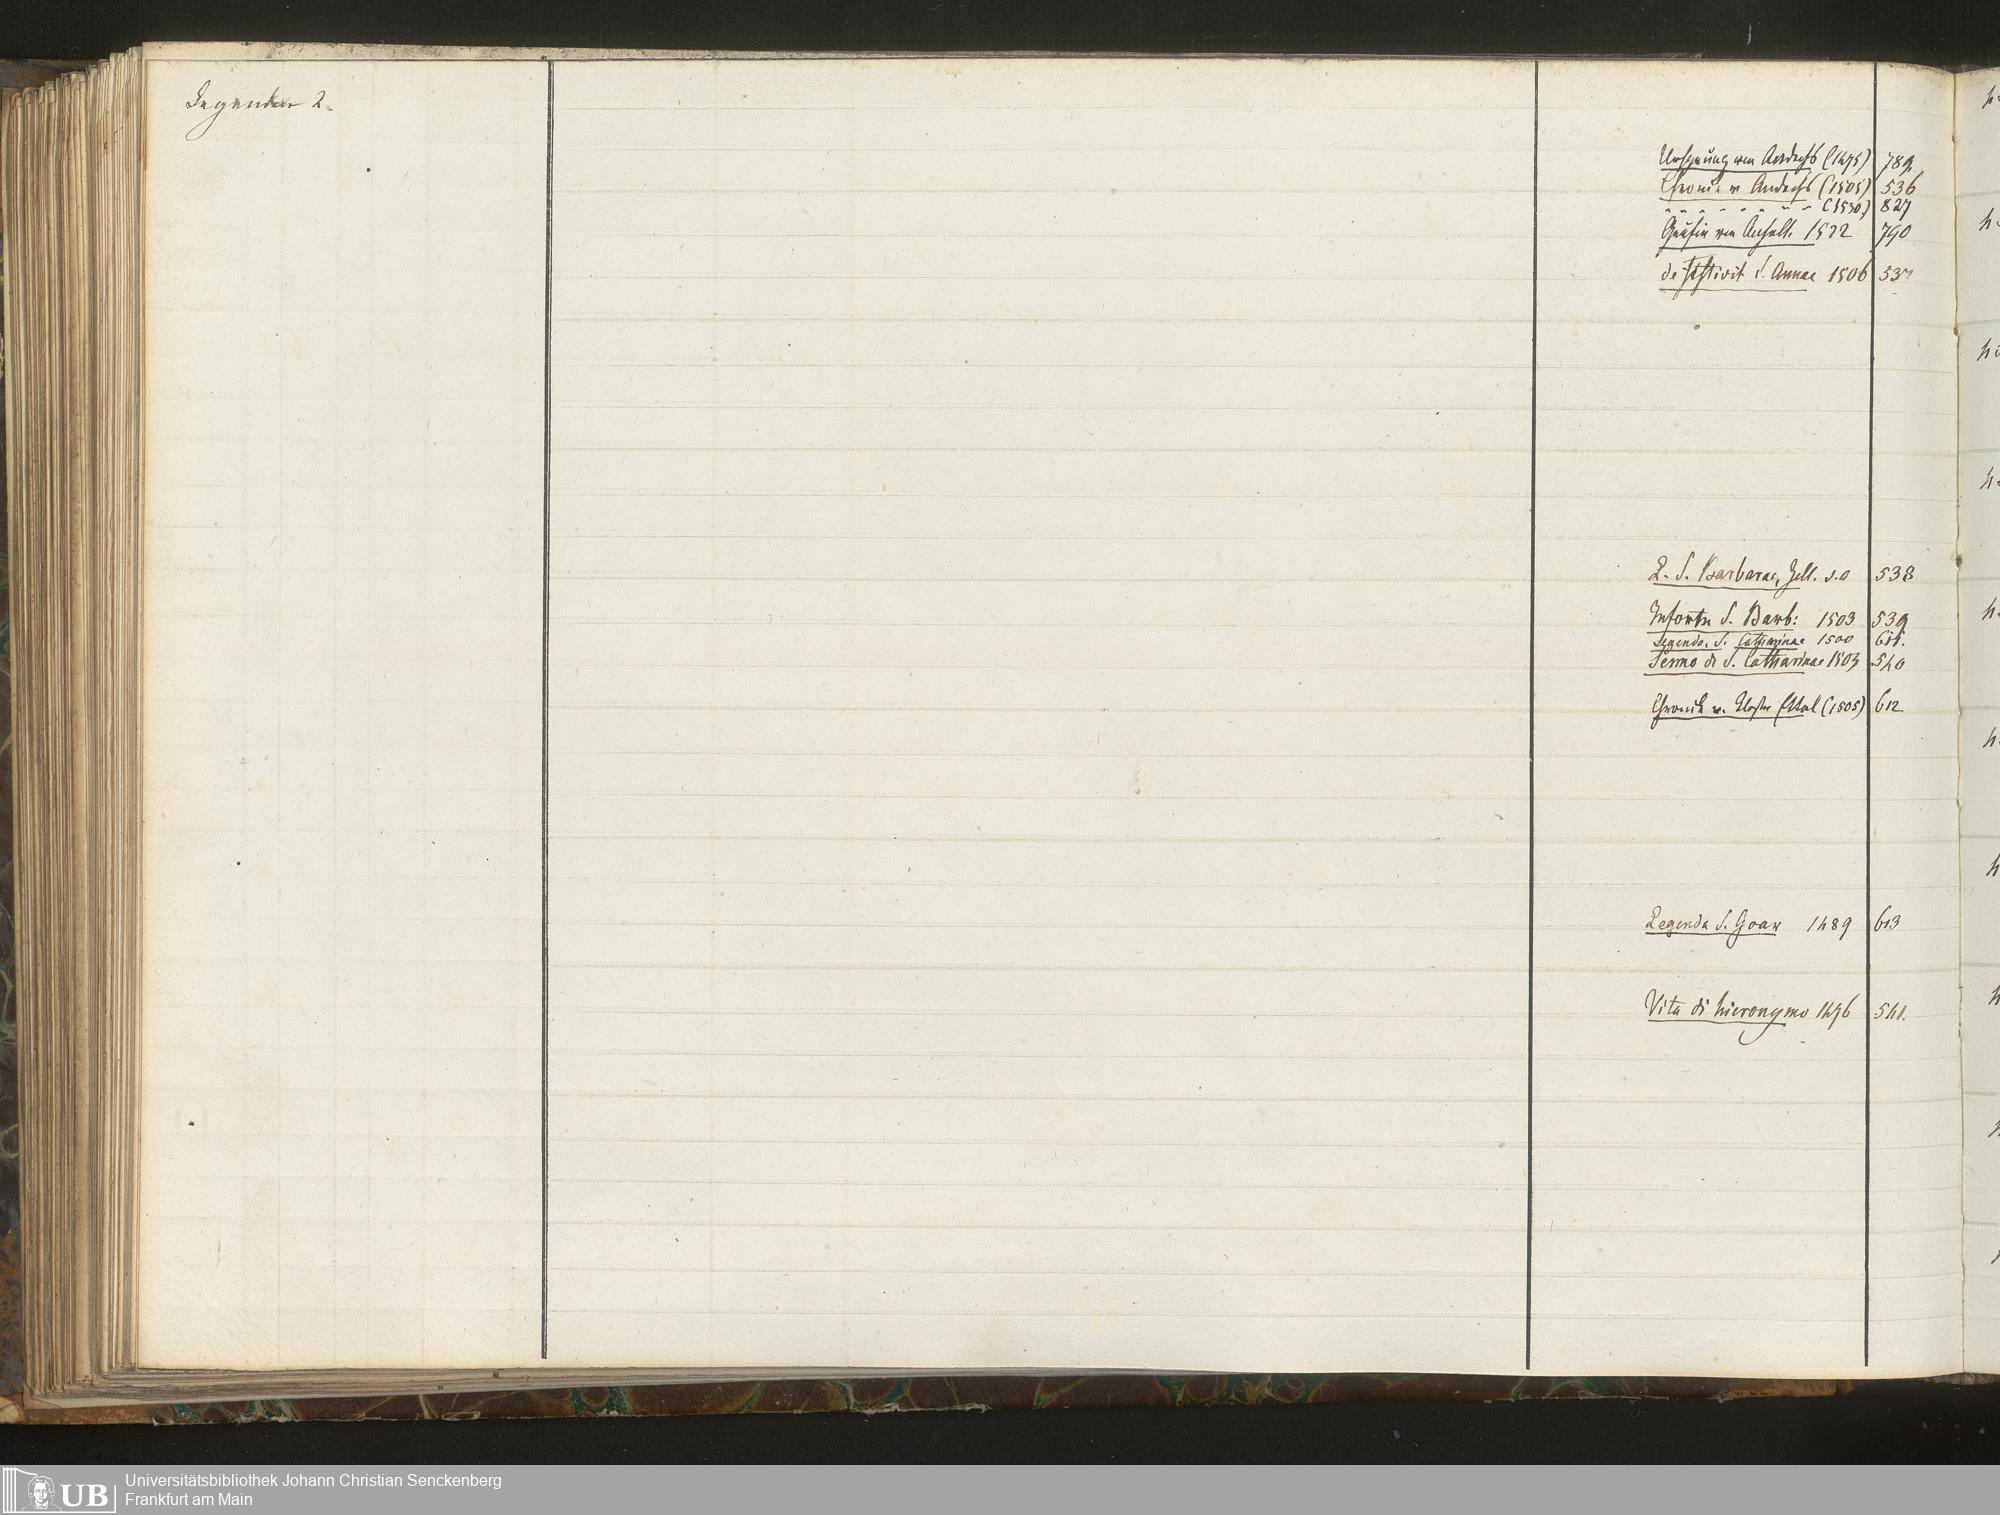 Legenden 2.
Ursprung von Andechs (1475) 789.
Chronik v Andechs (1505) 536
" " " " " " " (1530) 827
Gräfin von Anhalt. 1522 790
de festivit S. Annae 1506 537
L. S. Barbarae, Zell. s.a 538
S. Barb: 1503 539
Legenda S. Catharinae 1500 611.
Sermo de S. Catharinae 1503 540
Chronik v. Kloster Ettal (1505) 612
Legenda S. Goar 1489 613
Vita di hieronymo 1476 541.
UB
Universitätsbibliothek Johann Christian Senckenberg
Frankfurt am Main